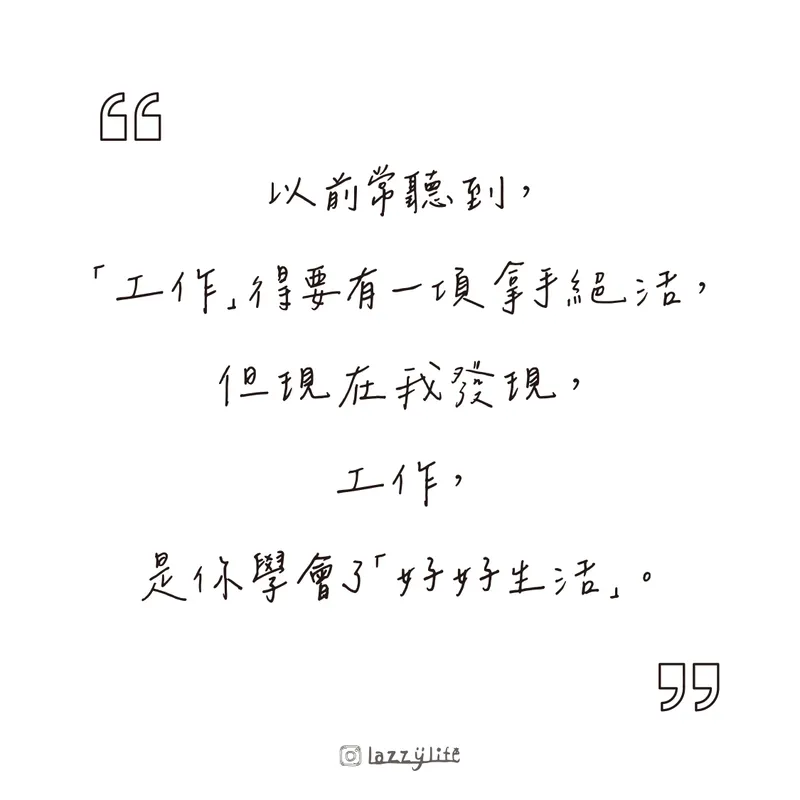 ❝
以前常聽到，
「工作」得要有一項拿手絕活，
但現在我發現，
工作，
是你學會了「好好生活」。
❞
lazzylife